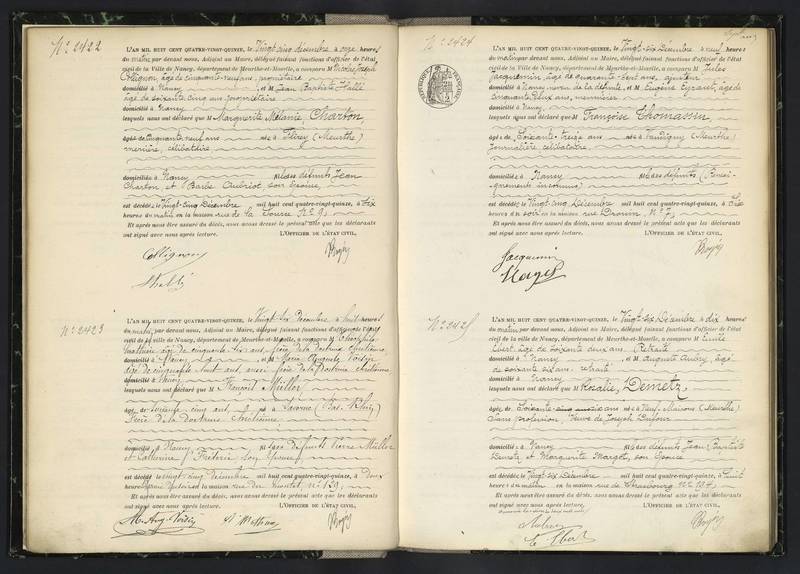 N° 2422
L'AN MIL HUIT CENT QUATRE-VINGT-QUINZE, le Vingt cinq décembre à onze heures
du matin par devant nous, Adjoint au Maire, délégué faisant fonctions d'officier de l'état
civil de la Ville de Nancy, département de Meurthe-et-Moselle, a comparu M Nicolas Joseph
Collignon, âgé de cinquante neuf ans, propriétaire
domicilié à Nancy et M Jean Baptiste Hallé
âgé de soixante cinq ans propriétaire
domicilié à Nancy
lesquels nous ont déclaré que M Marguerite Mélanie Charton,
âgée de Cinquante neuf ans née à Létrey (Meurthe)
rentière, célibataire
domiciliée à Nancy fille des défunts Jean
Charton et Barbe Aubriot son épouse,
est décédée le Vingt-Cinq Décembre mil huit cent quatre-vingt-quinze, à Six
heures du matin en la maison rue de la Source N° 9
Et après nous être assuré du décès, nous avons dressé le présent acte que les déclarants
ont signé avec nous après lecture. L'OFFICIER DE L'ÉTAT CIVIL,
Collignon
Hallé
N° 2423
L'AN MIL HUIT CENT QUATRE-VINGT-QUINZE, le Vingt-six Décembre à huit heures
du matin, par devant nous, Adjoint au Maire, délégué faisant fonctions d'officier de l'état
civil de la Ville de Nancy, département de Meurthe-et-Moselle, a comparu M
âgé de cinquante ans, frère de la Doctrine Chrétienne,
domicilié à Nancy et M Marie Auguste Voisin
âgé de cinquante huit ans, aussi frère de la Doctrine chrétienne
domicilié à Nancy
lesquels nous ont déclaré que M François Müller
âgé de soixante cinq ans, né à Saverne (Bas-Rhin)
Frère de la Doctrine Chrétienne
domicilié à Nancy fils des défunts Pierre Müller
et Catherine son épouse
est décédé le vingt-cinq décembre mil huit cent quatre-vingt-quinze, à deux
heures en la maison rue du Montet, n° 129,
Et après nous être assuré du décès, nous avons dressé le présent acte que les déclarants
ont signé avec nous après lecture. L'OFFICIER DE L'ÉTAT CIVIL,
N° 2424
L'AN MIL HUIT CENT QUATRE-VINGT-QUINZE, le Vingt-six Décembre à neuf heures
du matin par devant nous, Adjoint au Maire, délégué faisant fonctions d'officier de l'état
civil de la Ville de Nancy, département de Meurthe-et-Moselle, a comparu M Jules
Jacquemin, âgé de quarante ans, ajusteur
domicilié à Nancy neveu de la défunte, et M Eugène Eyraset, âgé de
cinquante deux ans, menuisier
domicilié à Nancy
lesquels nous ont déclaré que M Françoise Thomassin,
âgée de Soixante-treize ans née à Tantigny (Meurthe)
journalière célibataire,
domiciliée à Nancy fille des défunts (Renseignements inconnus)
est décédée le Vingt-Cinq Décembre mil huit cent quatre-vingt-quinze, à Six
heures du soir en la maison rue Drouin, N° 7
Et après nous être assuré du décès, nous avons dressé le présent acte que les déclarants
ont signé avec nous après lecture. L'OFFICIER DE L'ÉTAT CIVIL,
Jacquemin
N° 2425
L'AN MIL HUIT CENT QUATRE-VINGT-QUINZE, le Vingt-six Décembre à dix heures
du matin, par devant nous, Adjoint au Maire, délégué faisant fonctions d'officier de l'état
civil de la Ville de Nancy, département de Meurthe-et-Moselle, a comparu M Emile
âgé de soixante deux ans, Retraité
domicilié à Nancy et M Auguste Aubry âgé
de soixante six ans, retraité
domicilié à Nancy
lesquels nous ont déclaré que M Rosalie Demetz
âgée de Soixante ans née à Neuf-Maisons (Meurthe)
Sans profession Veuve de Joseph Dufour
domiciliée à Nancy fille des défunts Jean Baptiste
Demetz et Marguerite Margot, son épouse
est décédée le Vingt-Six Décembre mil huit cent quatre-vingt-quinze, à huit
heures du matin en la maison rue de Strasbourg N° 134
Et après nous être assuré du décès, nous avons dressé le présent acte que les déclarants
ont signé avec nous après lecture. L'OFFICIER DE L'ÉTAT CIVIL,